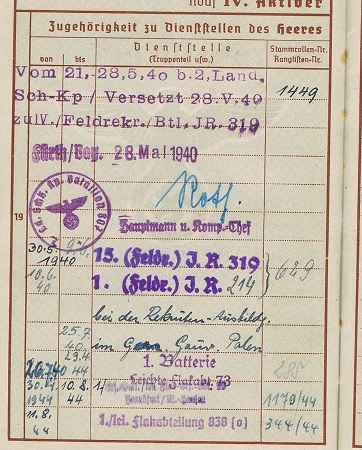 noch IV. Aktiver
Zugehörigkeit zu Dienststellen des Heeres
von bis Dienststelle (Truppenteil usw.) Stammrollen-Nr. Ranglisten-Nr.
Vom 21.-28.5.40 b.2.Land.
Sch-Kp / Versetzt 28.V.40 1449
zu IV./Feldrekr./Btl.JR.319
Fürth/Bay. 28. Mai 1940
19
Hauptmann u. Komp.-Chef
30.5. 1940 15. (Feldr.) J.R. 319
10.6. 40 1. (Feldr.) J.R. 214 629
bei der Rekruten-Ausbildg.
25.7. 40 im Gouv. Polen
29.4. 44 1. Batterie
26.7.40 Leichte Flakabt. 73
30.4. 1944 10.8. 44 1179/44
11.8. 44 1./lei. Flakabteilung 838 (o) 344/44